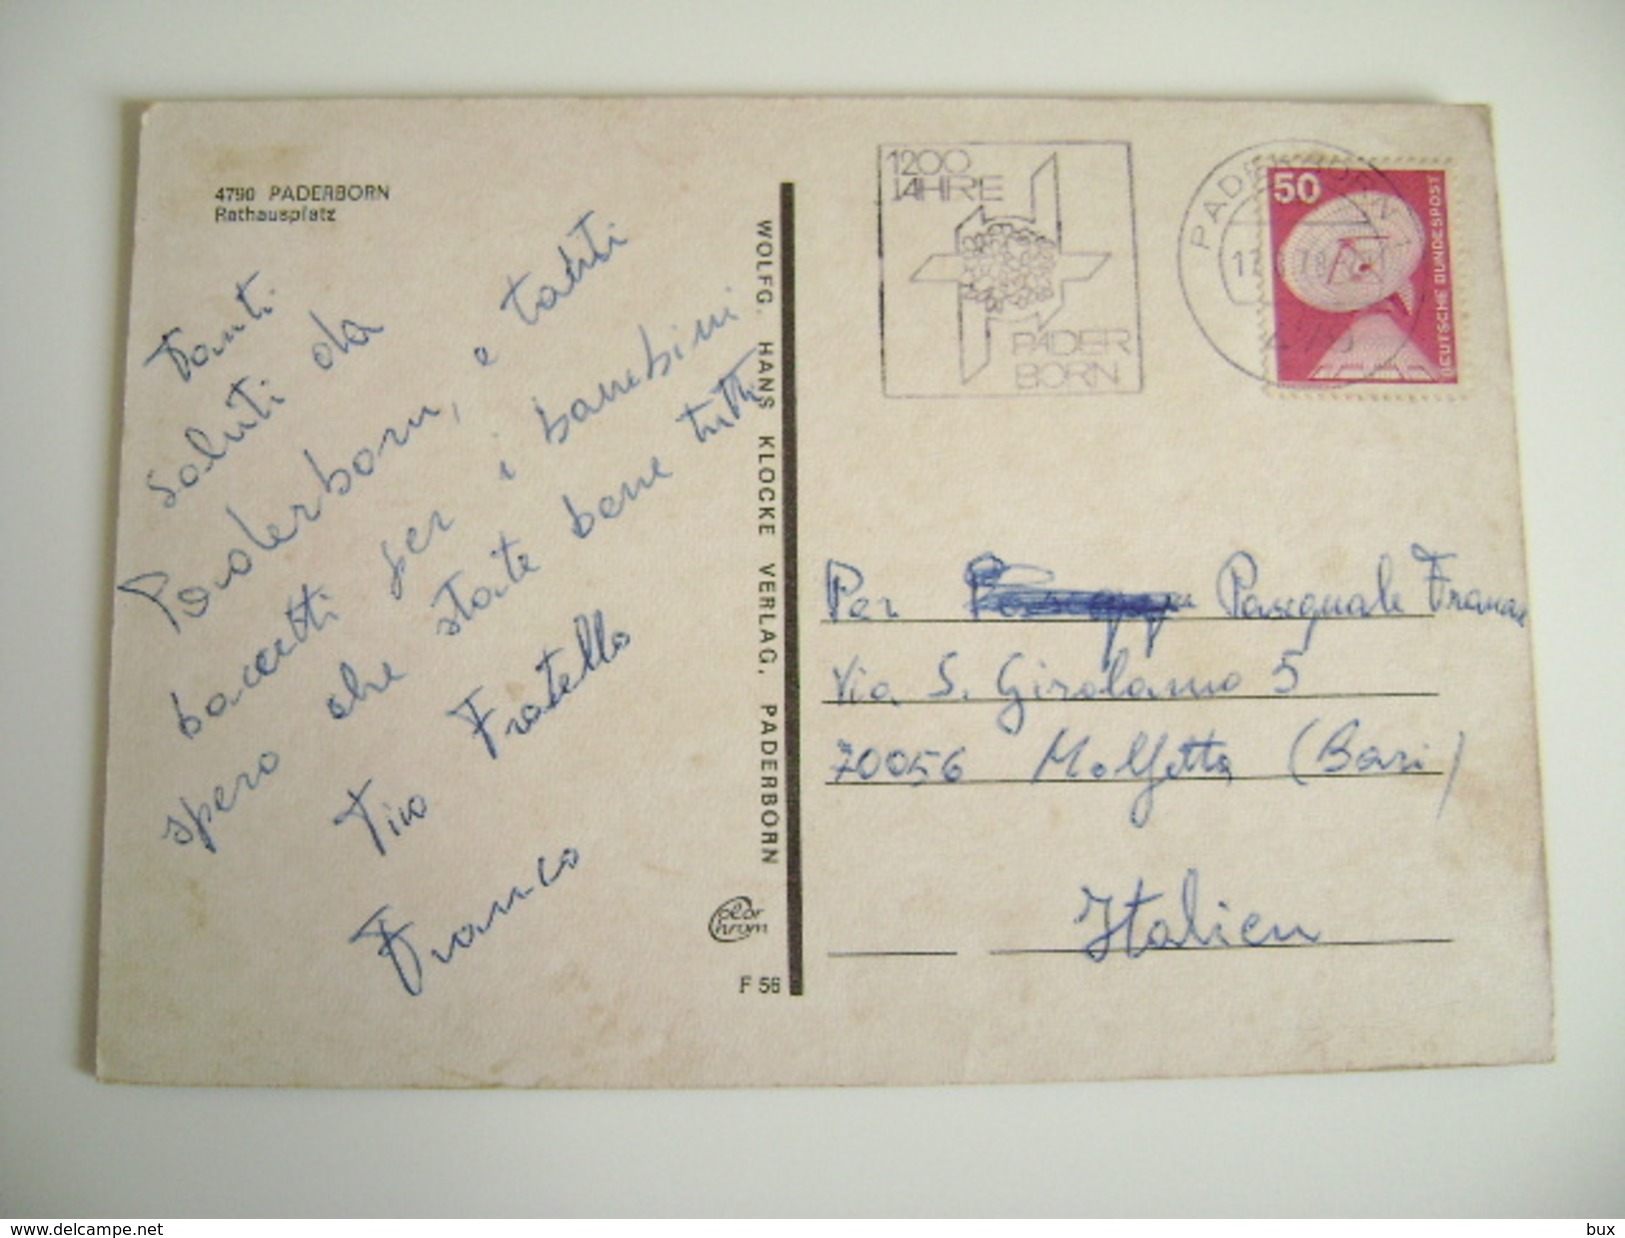 4790 PADERBORN
Rathausplatz
Tanti
saluti da
Paderborn, e tanti
baccetti per i bambini
spero che state bene tutti
Tuo Fratello
Franco
WOLFG. HANS KLOCKE VERLAG, PADERBORN
color
chrom
F 56
1200
JAHRE
PADER
BORN
PADERBORN
50
DEUTSCHE BUNDESPOST
Per Pasquale
Via S. Girolamo 5
70056 Molfetta (Bari)
Italien
www.delcampe.net
bux